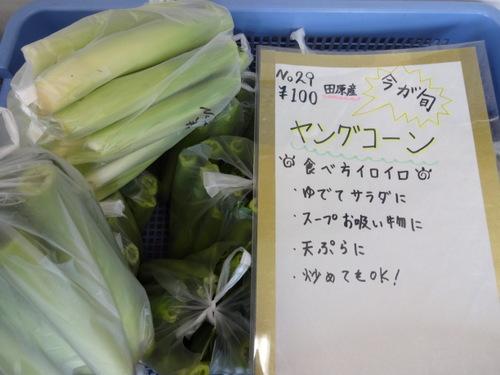 No29
¥100 田原産
今が旬
ヤングコーン
食べ方イロイロ
・ゆでてサラダに
・スープお吸い物に
・天ぷらに
・炒めてもOK!